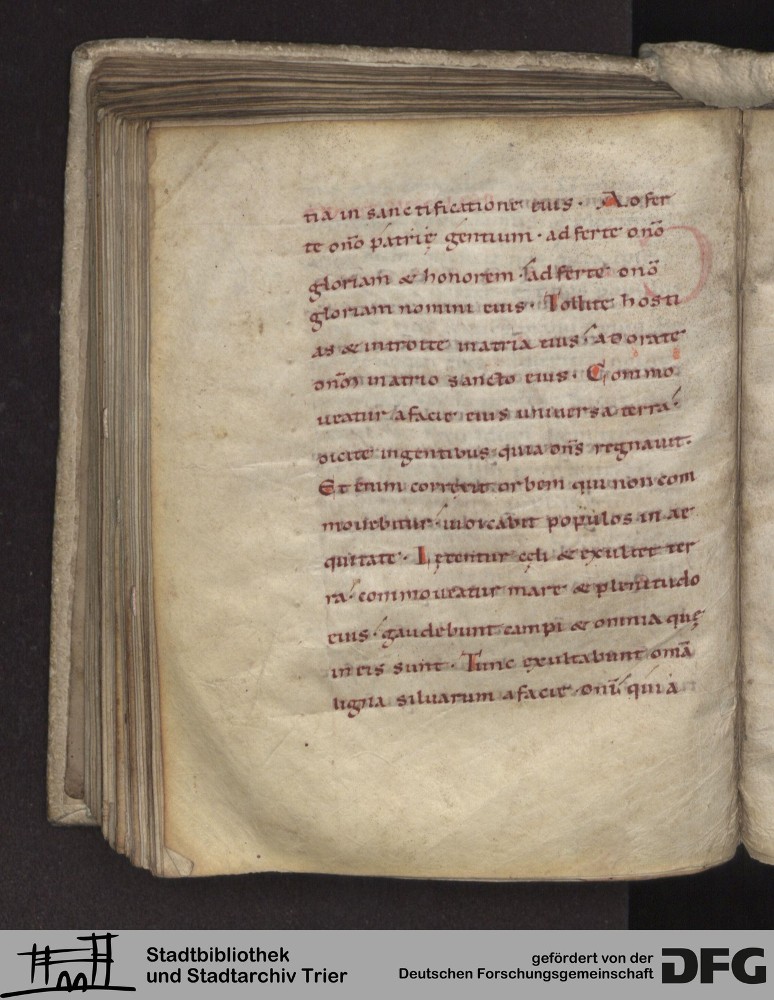 tia in sanctificatione eius· Adfer
te dnō patrię gentium· ad ferte dnō
gloriam & honorem· ad ferte dnō
gloriam nomini eius· Tollite hosti
as & introite in atria eius· adorate
dnm in atrio sancto eius· Commo
ueatur a facie eius uniuersa terra·
dicite in gentibus quia dns̄ regnauit·
Et enim correxit orbem qui non com
mouebitur· iudicabit populos in ae
quitate· Lętentur cęli & exultet ter
ra· commoueatur mare & plenitudo
eius· gaudebunt campi & omnia quę
in eis sunt· Tunc exultabunt omā
ligna siluarum a facie dnī quia
Stadtbibliothek
und Stadtarchiv Trier
gefördert von der
Deutschen Forschungsgemeinschaft
DFG